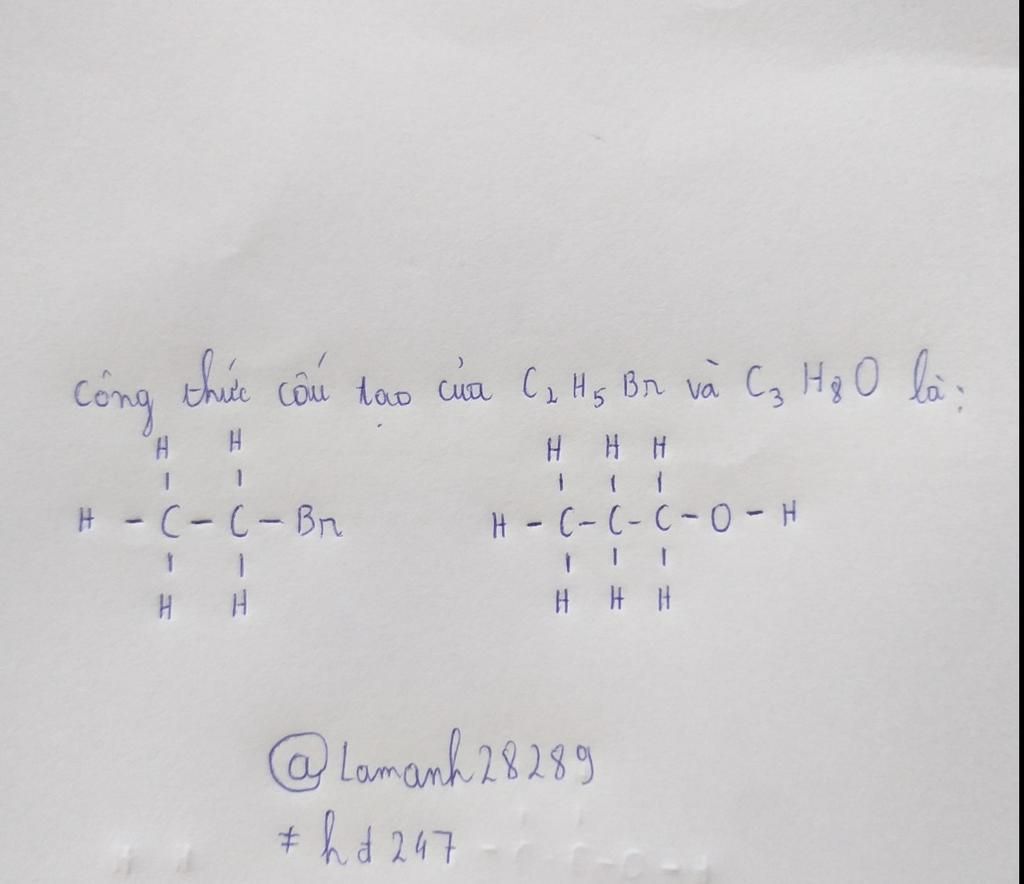 Công thức cấu tạo của C₂H₅Br và C₃H₈O là:
H H H H H
H - C - C - Br H - C - C - C - O - H
H H H H H
@Lamanh28289
≠ hđ247